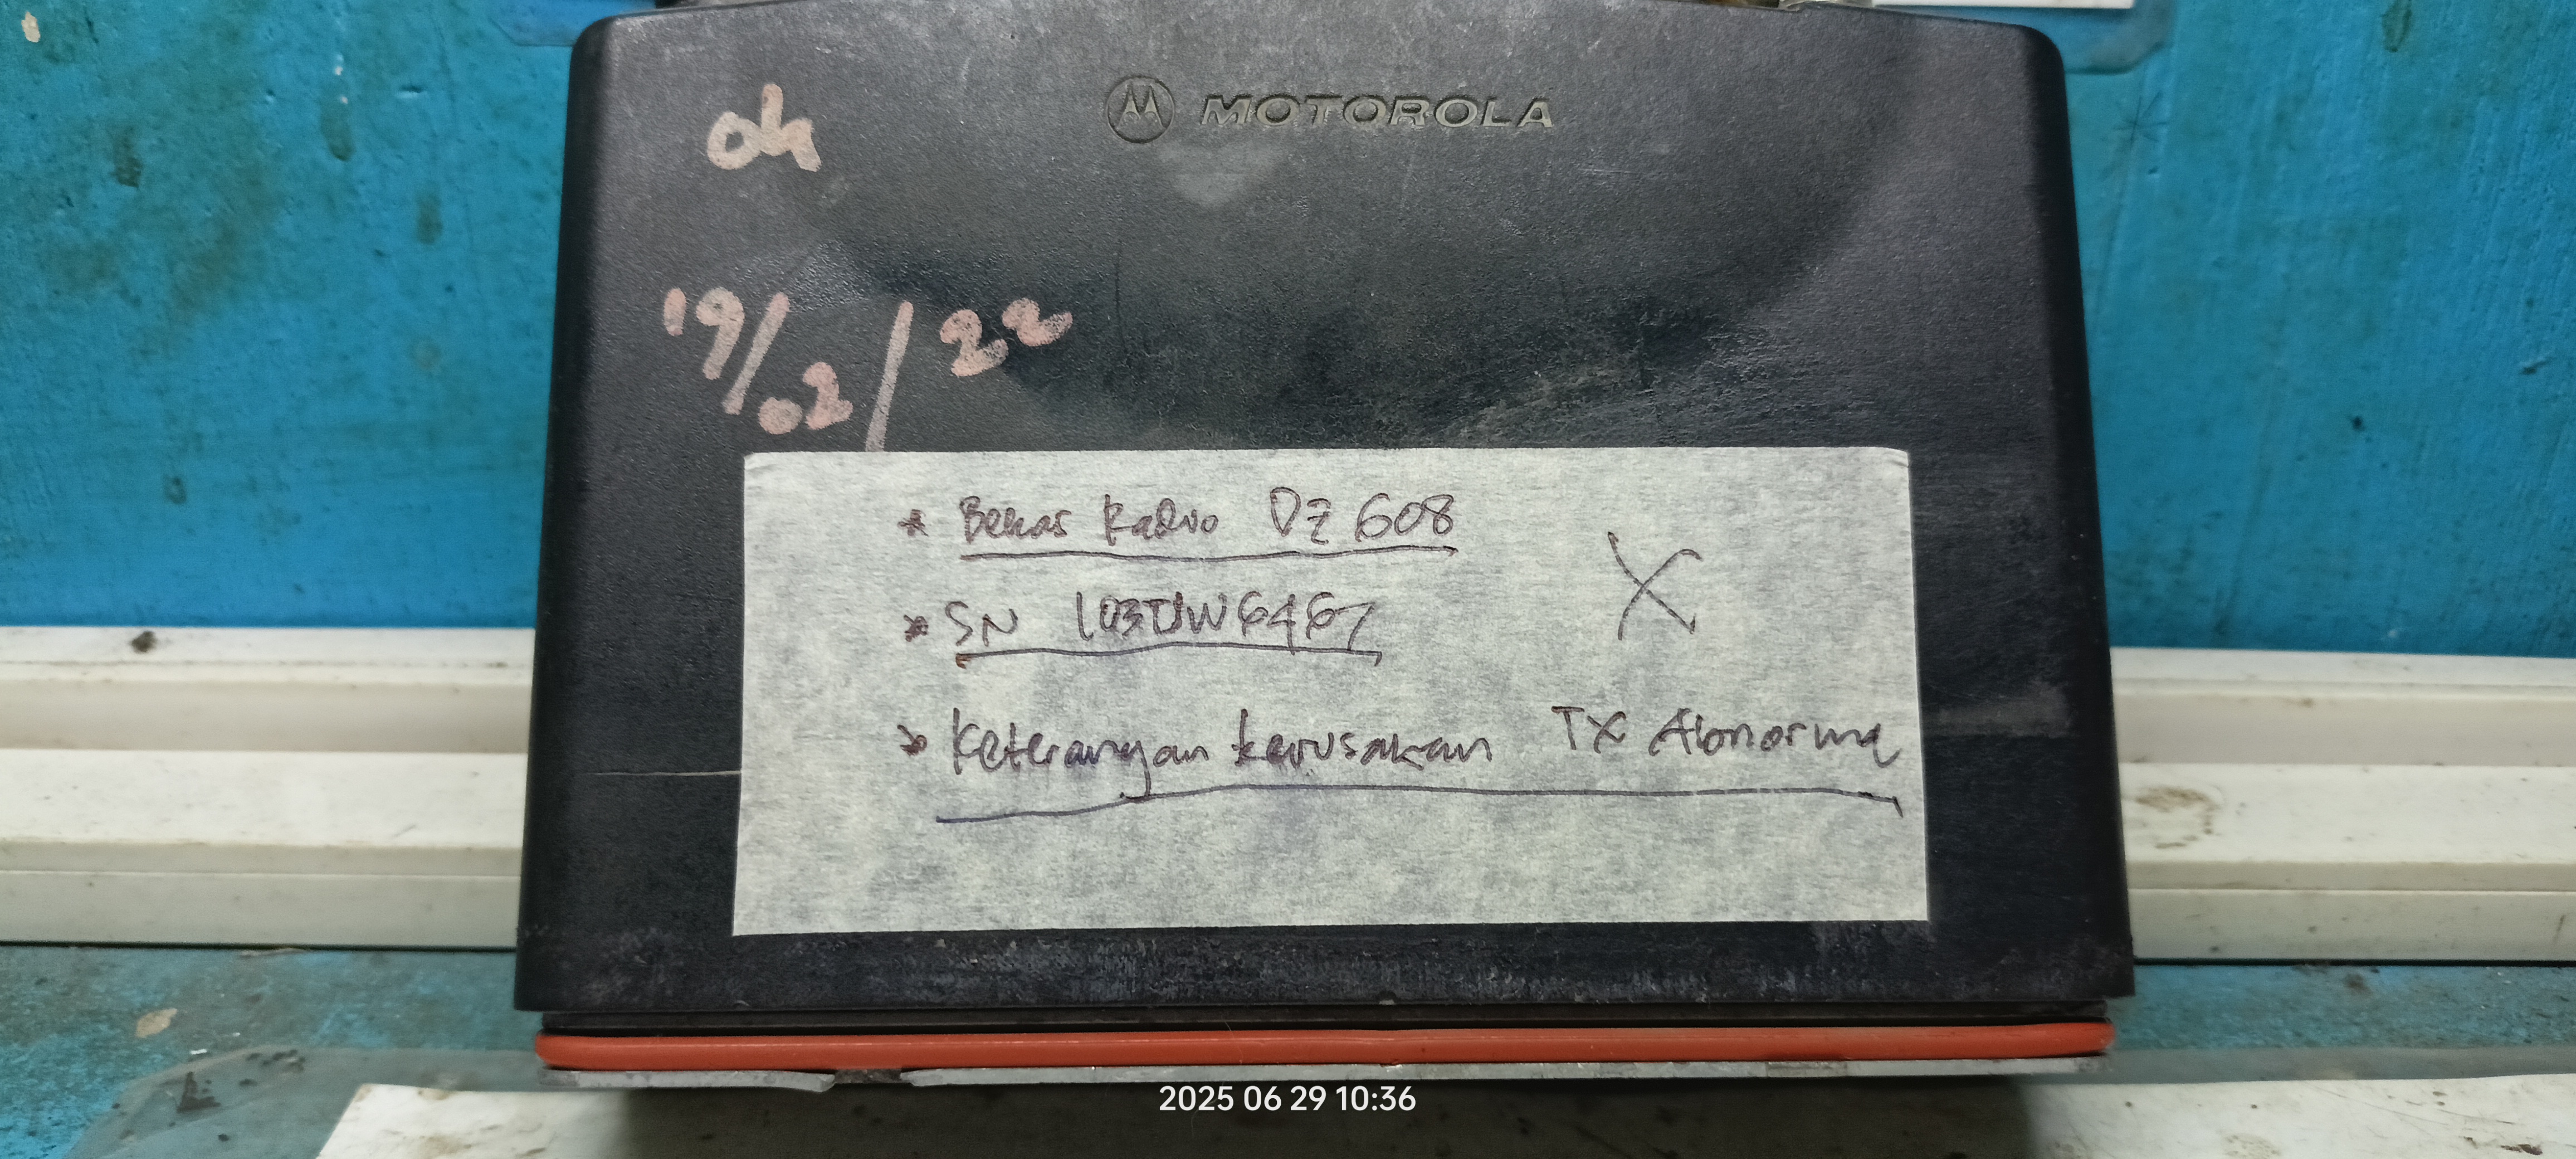 MOTOROLA
ok
19/02/22
* Bekas Radio DZ 608
X
* SN 103TUW6467
* Keterangan kerusakan TX Abnormal
2025 06 29 10:36